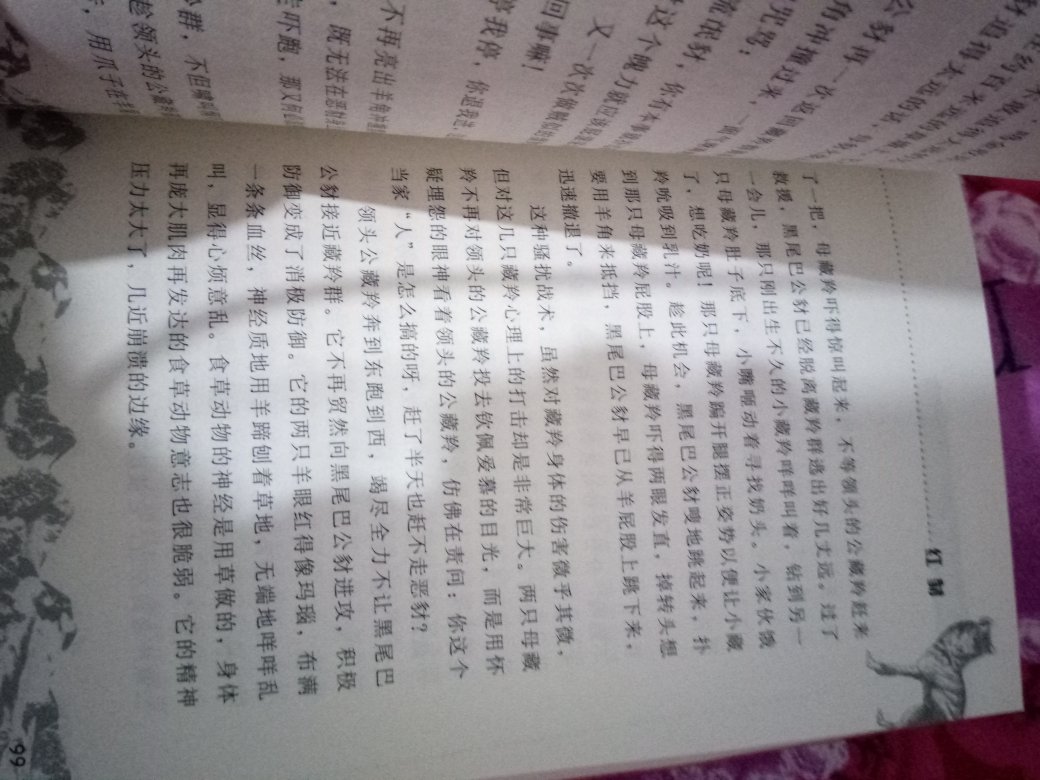 豺追得太远的话，
公豺再一次返回藏羚
角冲撞过来，一
咒骂：
流氓豺，你有本事
这个魄力就应该
又一次次
回事嘛！
停我停，你退我进，
不再亮出羊角冲
，既无法在恶豺
吓跑，那又何
群，不但
趁领头的公藏羚
，用爪子在
红豺
了一把，母藏羚吓得惊叫起来，不等领头的公藏羚赶来
救援，黑尾巴公豺已经脱离藏羚群逃出好几丈远。过了
一会儿，那只刚出生不久的小藏羚咩咩叫着，钻到另一
只母藏羚肚子底下，小嘴嚅动着寻找奶头。小家伙饿
了，想吃奶呢！那只母藏羚胯开腿摆正姿势以便让小藏
羚吮吸到乳汁。趁此机会，黑尾巴公豺嗖地跳起来，扑
到那只母藏羚屁股上，母藏羚吓得两眼发直，掉转头想
要用羊角来抵挡，黑尾巴公豺早已从羊屁股上跳下来，
迅速撤退了。
这种骚扰战术，虽然对藏羚身体的伤害微乎其微，
但对这几只藏羚心理上的打击却是非常巨大。两只母藏
羚不再对领头的公藏羚投去钦佩爱慕的目光，而是用怀
疑埋怨的眼神看着领头的公藏羚，仿佛在责问：你这个
当家“人”是怎么搞的呀，赶了半天也赶不走恶豺？
领头公藏羚奔到东跑到西，竭尽全力不让黑尾巴
公豺接近藏羚群。它不再贸然向黑尾巴公豺进攻，积极
防御变成了消极防御。它的两只羊眼红得像玛瑙，布满
一条条血丝，神经质地用羊蹄刨着草地，无端地咩咩乱
叫，显得心烦意乱。食草动物的神经是用草做的，身体
再庞大肌肉再发达的食草动物意志也很脆弱。它的精神
压力太大了，几近崩溃的边缘。
99